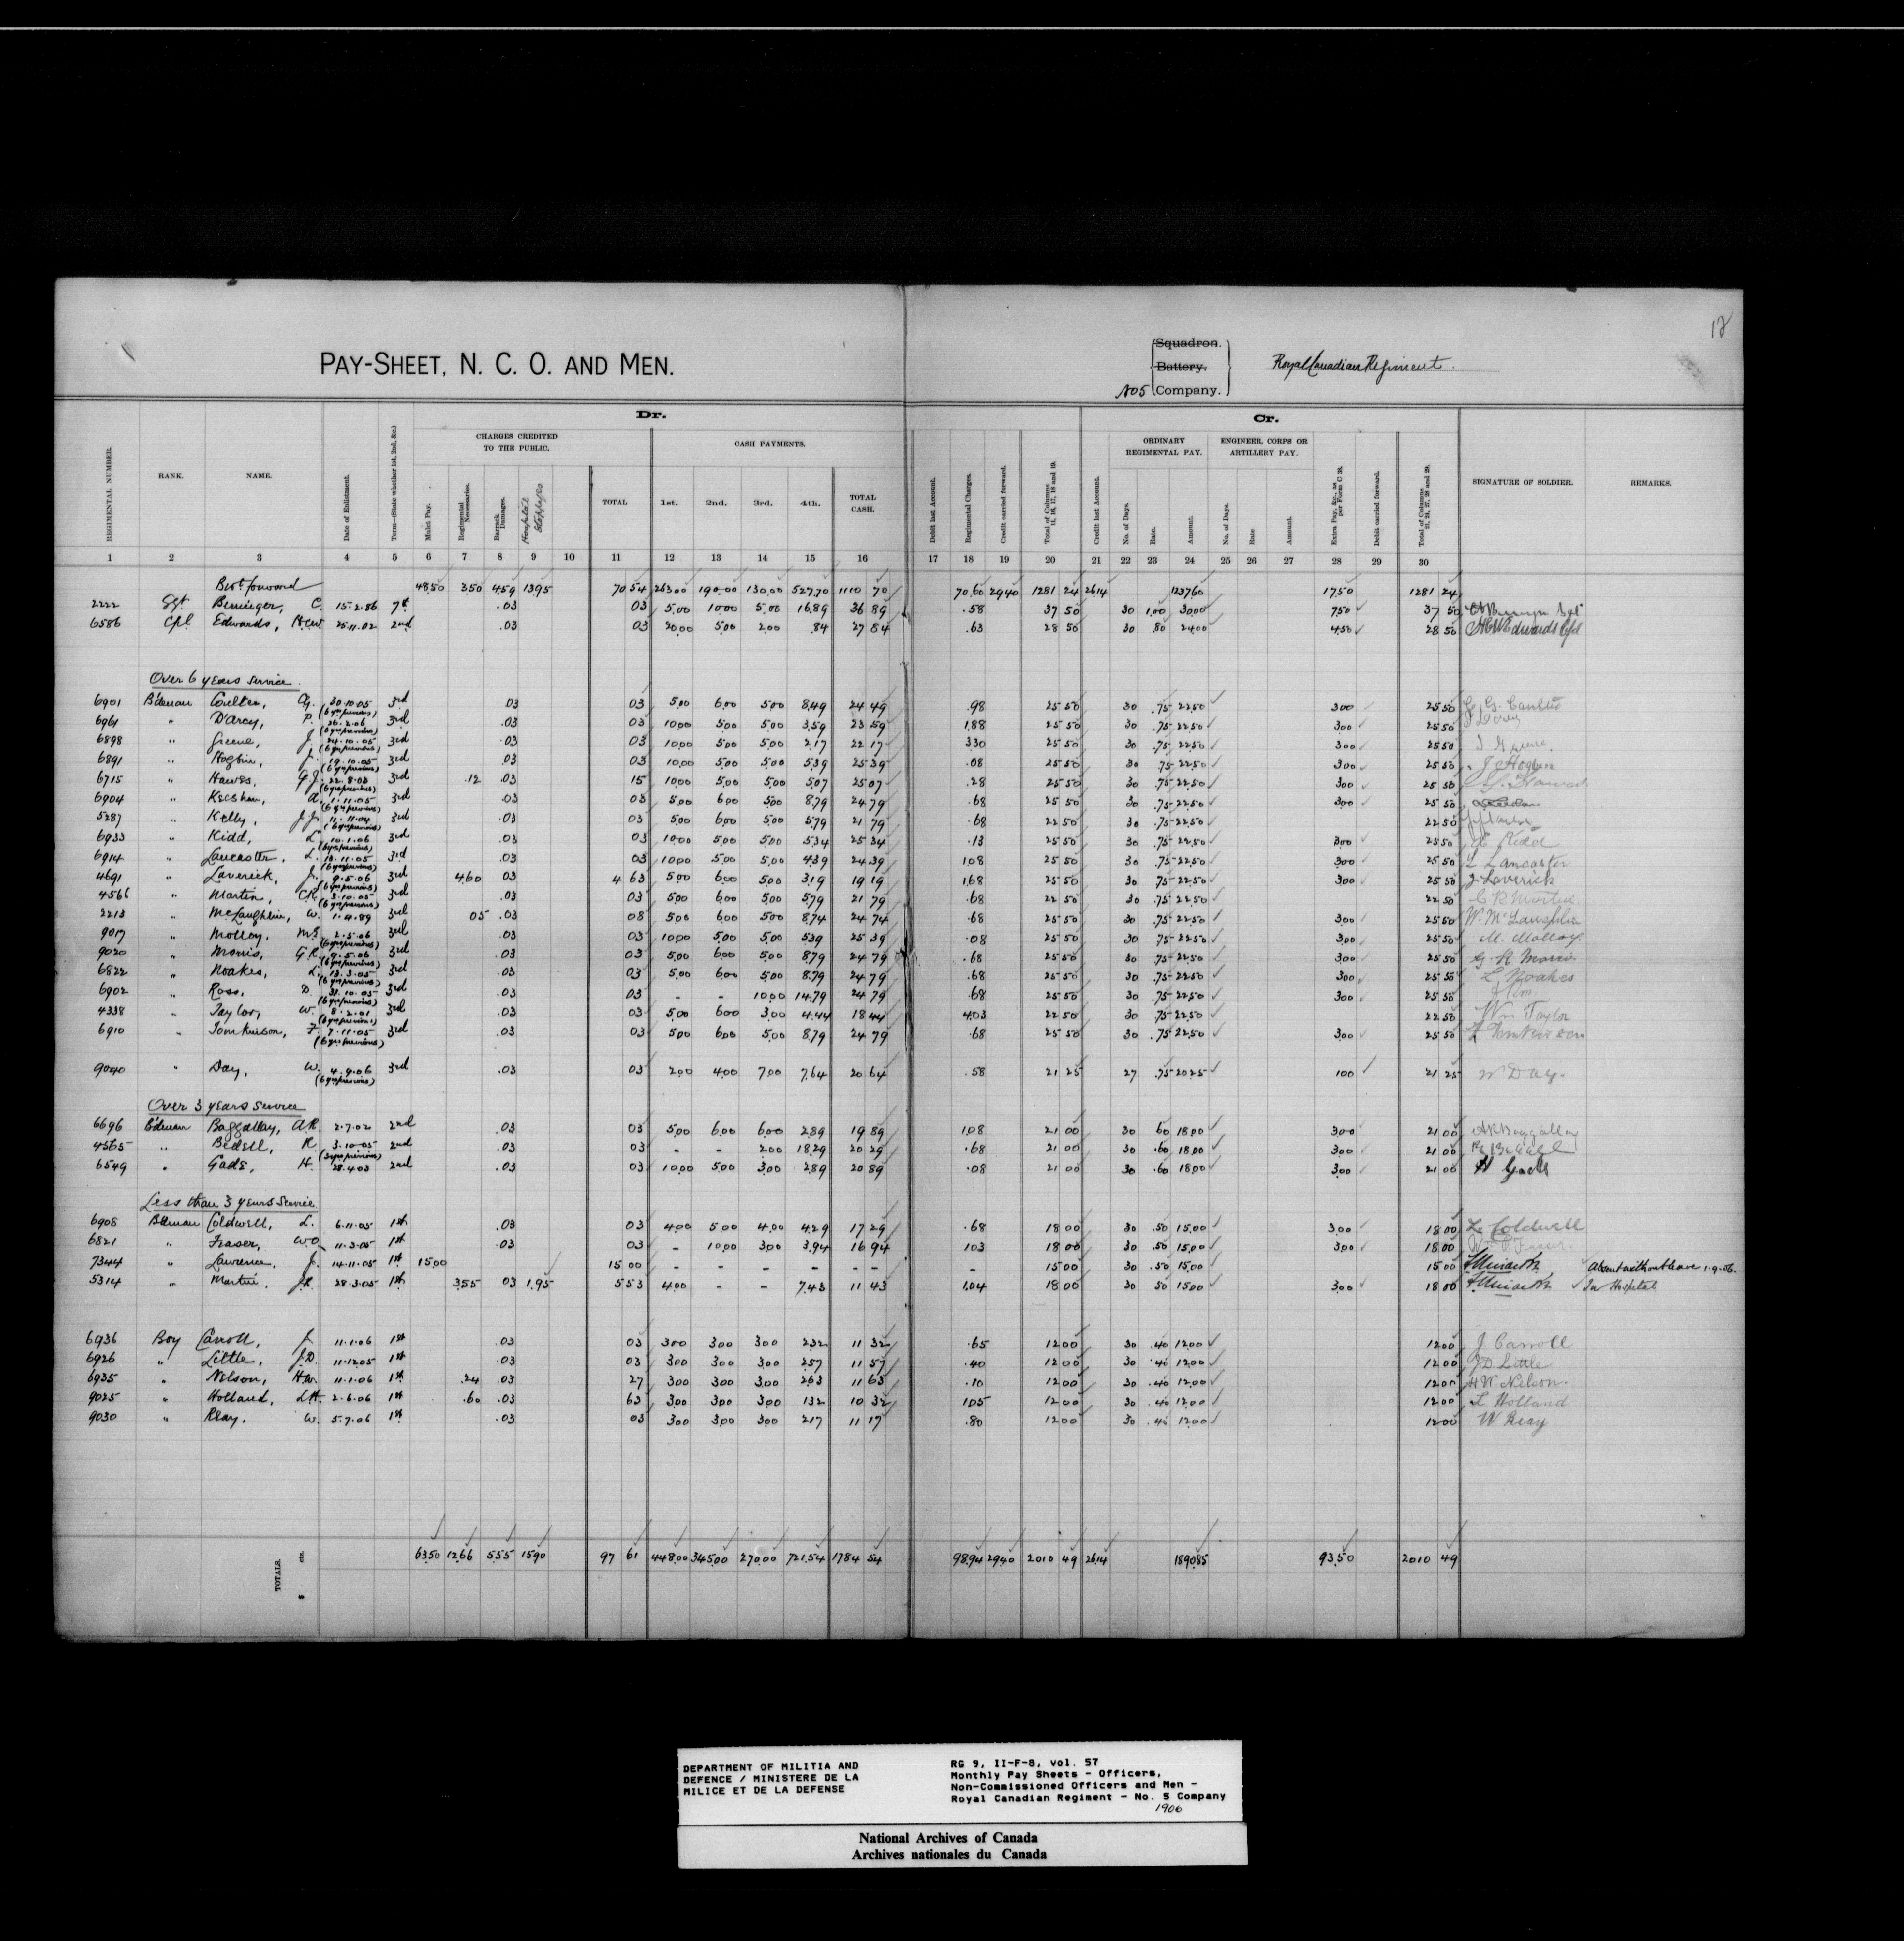 12
PAY-SHEET, N. C. O. AND MEN.
Squadron.
Battery.
No 5 Company.
Royal Canadian Regiment.
Dr.
Cr.
CHARGES CREDITED TO THE PUBLIC.
CASH PAYMENTS.
ORDINARY REGIMENTAL PAY.
ENGINEER, CORPS OR ARTILLERY PAY.
REGIMENTAL NUMBER. RANK. NAME. Date of Enlistment. Term—(State whether 1st, 2nd, &c.) Mulct Pay. Regimental Necessaries. Barrack Damages. Hospital Stoppages TOTAL 1st. 2nd. 3rd. 4th. TOTAL CASH. Debit last Account. Regimental Charges. Credit carried forward. Total of Columns 11, 16, 17, 18 and 19. Credit last Account. No. of Days. Rate. Amount. No. of Days. Rate Amount. Extra Pay, &c., as per Form C 38. Debit carried forward. Total of Columns 21, 24, 27, 28 and 29. SIGNATURE OF SOLDIER. REMARKS.
1 2 3 4 5 6 7 8 9 10 11 12 13 14 15 16 17 18 19 20 21 22 23 24 25 26 27 28 29 30
Brot. forward 48.50 3.50 4.59 13.95 70 54 263.00 190.00 130.00 527.70 1110 70 70.60 29.40 1281 24 26.14 1237.60 17.50 1281 24
2222 Sgt Beninger, C. 15.2.86 7th .03 03 5.00 10.00 5.00 16.89 36 89 .58 37 50 30 1.00 30.00 7.50 37 50
6586 Cpl Edwards, H.C.W. 25.11.02 2nd .03 03 20.00 5.00 2.00 .84 27 84 .63 28 50 30 .80 24.00 4.50 28 50 H C W Edwards Cpl
Over 6 years service.
6901 B'dsman Coulter, G. 30.10.05 (6 yrs previous) 3rd .03 03 5.00 6.00 5.00 8.49 24 49 .98 25 50 30 .75 22.50 3.00 25 50
6961 " D'Arcy, P. 26.2.06 (6 yrs previous) 3rd .03 03 10.00 5.00 5.00 3.59 23 59 1.88 25 50 30 .75 22.50 3.00 25 50
6898 " Greene, J. 24.10.05 (6 yrs previous) 3rd .03 03 10.00 5.00 5.00 2.17 22 17 3.30 25 50 30 .75 22.50 3.00 25 50
6891 " Hogbin, J. 19.10.05 (6 yrs previous) 3rd .03 03 10.00 5.00 5.00 5.39 25 39 .08 25 50 30 .75 22.50 3.00 25 50 J Hogbin
6715 " Hawes, G.J. 22.8.03 (6 yrs previous) 3rd .12 .03 15 10.00 5.00 5.00 5.07 25 07 .28 25 50 30 .75 22.50 3.00 25 50
6904 " Keeshan, A. 1.11.05 (6 yrs previous) 3rd .03 03 5.00 6.00 5.00 8.79 24 79 .68 25 50 30 .75 22.50 3.00 25 50
5287 " Kelly, J.J. 11.11.04 (6 yrs previous) 3rd .03 03 5.00 6.00 5.00 5.79 21 79 .68 22 50 30 .75 22.50 22 50
6933 " Kidd, L. 10.1.06 (6 yrs previous) 3rd .03 03 10.00 5.00 5.00 5.34 25 34 .13 25 50 30 .75 22.50 3.00 25 50 Kidd
6914 " Lancaster, L. 13.11.05 (6 yrs previous) 3rd .03 03 10.00 5.00 5.00 4.39 24 39 1.08 25 50 30 .75 22.50 3.00 25 50 L Lancaster
4691 " Laverick, J. 9.5.06 (6 yrs previous) 3rd 4.60 03 4 63 5.00 6.00 5.00 3.19 19 19 1.68 25 50 30 .75 22.50 3.00 25 50 J. Laverick
4566 " Martin, C.R. 3.10.05 (6 yrs previous) 3rd .03 03 5.00 6.00 5.00 5.79 21 79 .68 22 50 30 .75 22.50 22 50 C R Martin
2213 " McLaughlin, W. 1.4.89 3rd 05 .03 08 5.00 6.00 5.00 8.74 24 74 .68 25 50 30 .75 22.50 3.00 25 50 W. McLaughlin
9017 " Molloy, M.J. 2.5.06 (6 yrs previous) 3rd .03 03 10.00 5.00 5.00 5.39 25 39 .08 25 50 30 .75 22.50 3.00 25 50 M. Molloy
9020 " Morris, G.R. 9.5.06 (6 yrs previous) 3rd .03 03 5.00 6.00 5.00 8.79 24 79 .68 25 50 30 .75 22.50 3.00 25 50 G. R Morris
6822 " Noakes, L. 13.3.05 (6 yrs previous) 3rd .03 03 5.00 6.00 5.00 8.79 24 79 .68 25 50 30 .75 22.50 3.00 25 50 L Noakes
6902 " Ross, D. 31.10.05 (6 yrs previous) 3rd .03 03 - - 10.00 14.79 24 79 .68 25 50 30 .75 22.50 3.00 25 50
4338 " Taylor, W. 8.2.01 (6 yrs previous) 3rd .03 03 5.00 6.00 3.00 4.44 18 44 4.03 22 50 30 .75 22.50 22 50 Wm Taylor
6910 " Tomkinson, F. 7.11.05 (6 yrs previous) 3rd .03 03 5.00 6.00 5.00 8.79 24 79 .68 25 50 30 .75 22.50 3.00 25 50 F Tomkinson
9040 " Day, W. 4.9.06 (6 yrs previous) 3rd .03 03 2.00 4.00 7.00 7.64 20 64 .58 21 25 27 .75 20.25 1.00 21 25 W Day.
Over 3 years service
6696 B'dsman Baggallay, A.R. 2.7.02 2nd .03 03 5.00 6.00 6.00 2.89 19 89 1.08 21 00 30 .60 18.00 3.00 21 00 A R Baggallay
4565 " Bedell, R. 3.10.05 (3 yrs previous) 2nd .03 03 - - 2.00 18.29 20 29 .68 21 00 30 .60 18.00 3.00 21 00
6549 " Gade, H. 28.4.03 2nd .03 03 10.00 5.00 3.00 2.89 20 89 .08 21 00 30 .60 18.00 3.00 21 00
Less than 3 years service
6908 B'dsman Coldwell, L. 6.11.05 1st .03 03 4.00 5.00 4.00 4.29 17 29 .68 18 00 30 .50 15.00 3.00 18 00 L. Coldwell
6821 " Fraser, W.O. 11.3.05 1st .03 03 - 10.00 3.00 3.94 16 94 1.03 18 00 30 .50 15.00 3.00 18 00
7344 " Lawrence, J. 14.11.05 1st 15.00 15 00 - - - - - - - 15 00 30 .50 15.00 15 00 absent without leave 1.9.06.
5314 " Martin, J.R. 28.3.05 1st 3.55 03 1.95 5 53 4.00 - - 7.43 11 43 1.04 18 00 30 .50 15.00 3.00 18 00 In Hospital
6936 Boy Carroll, J. 11.1.06 1st .03 03 3.00 3.00 3.00 2.32 11 32 .65 12 00 30 .40 12.00 12 00 J Carroll
6926 " Little, J.D. 11.12.05 1st .03 03 3.00 3.00 3.00 2.57 11 57 .40 12 00 30 .40 12.00 12 00 J D Little
6935 " Nelson, H.W. 11.1.06 1st .24 .03 27 3.00 3.00 3.00 2.63 11 63 .10 12 00 30 .40 12.00 12 00 H W Nelson.
9025 " Holland, L.H. 2.6.06 1st .60 .03 63 3.00 3.00 3.00 1.32 10 32 1.05 12 00 30 .40 12.00 12 00 L Holland
9030 " Reay, W. 5.7.06 1st .03 03 3.00 3.00 3.00 2.17 11 17 .80 12 00 30 .40 12.00 12 00 W Reay
TOTALS. $ cts. 63.50 12.66 5.55 15.90 97 61 448.00 345.00 270.00 721.54 1784 54 98.94 29.40 2010 49 26.14 1890.85 93.50 2010 49
DEPARTMENT OF MILITIA AND
DEFENCE / MINISTERE DE LA
MILICE ET DE LA DEFENSE
RG 9, II-F-8, vol. 57
Monthly Pay Sheets - Officers,
Non-Commissioned Officers and Men -
Royal Canadian Regiment - No. 5 Company
1906
National Archives of Canada
Archives nationales du Canada